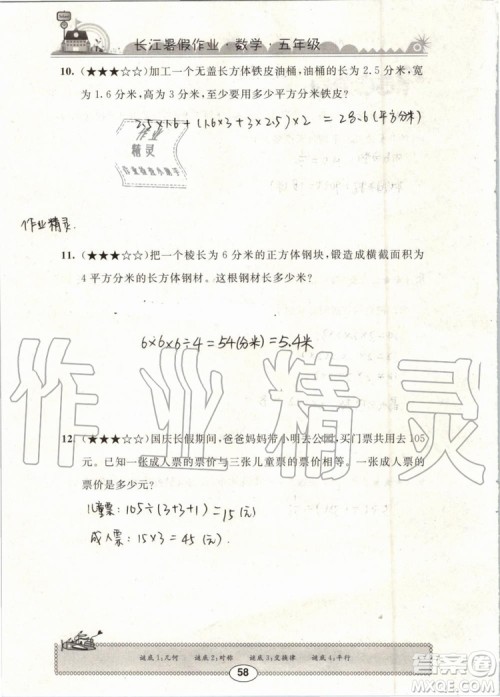 长江暑假作业·数学·五年级
10. (★★★☆☆)加工一个无盖长方体铁皮油桶,油桶的长为 2.5 分米,宽
为 1.6 分米,高为 3 分米,至少要用多少平方分米铁皮?
2.5×1.6+(1.6×3+3×2.5)×2 = 28.6(平方分米)
作业
精灵
作业精灵
11. (★★★☆☆)把一个棱长为 6 分米的正方体钢块,锻造成横截面积为
4 平方分米的长方体钢材。这根钢材长多少米?
6×6×6÷4=54(分米)=5.4米
作业精灵
12. (★★★☆☆)国庆长假期间,爸爸妈妈带小明去公园,买门票共用去 105
元。已知一张成人票的票价与三张儿童票的票价相等。一张成人票的
票价是多少元?
儿童票:105÷(3+3+1)=15(元)
成人票:15×3=45(元).
谜底1:几何 谜底2:对称 谜底3:交换律 谜底4:平行
58
答案圈
MXQE.COM